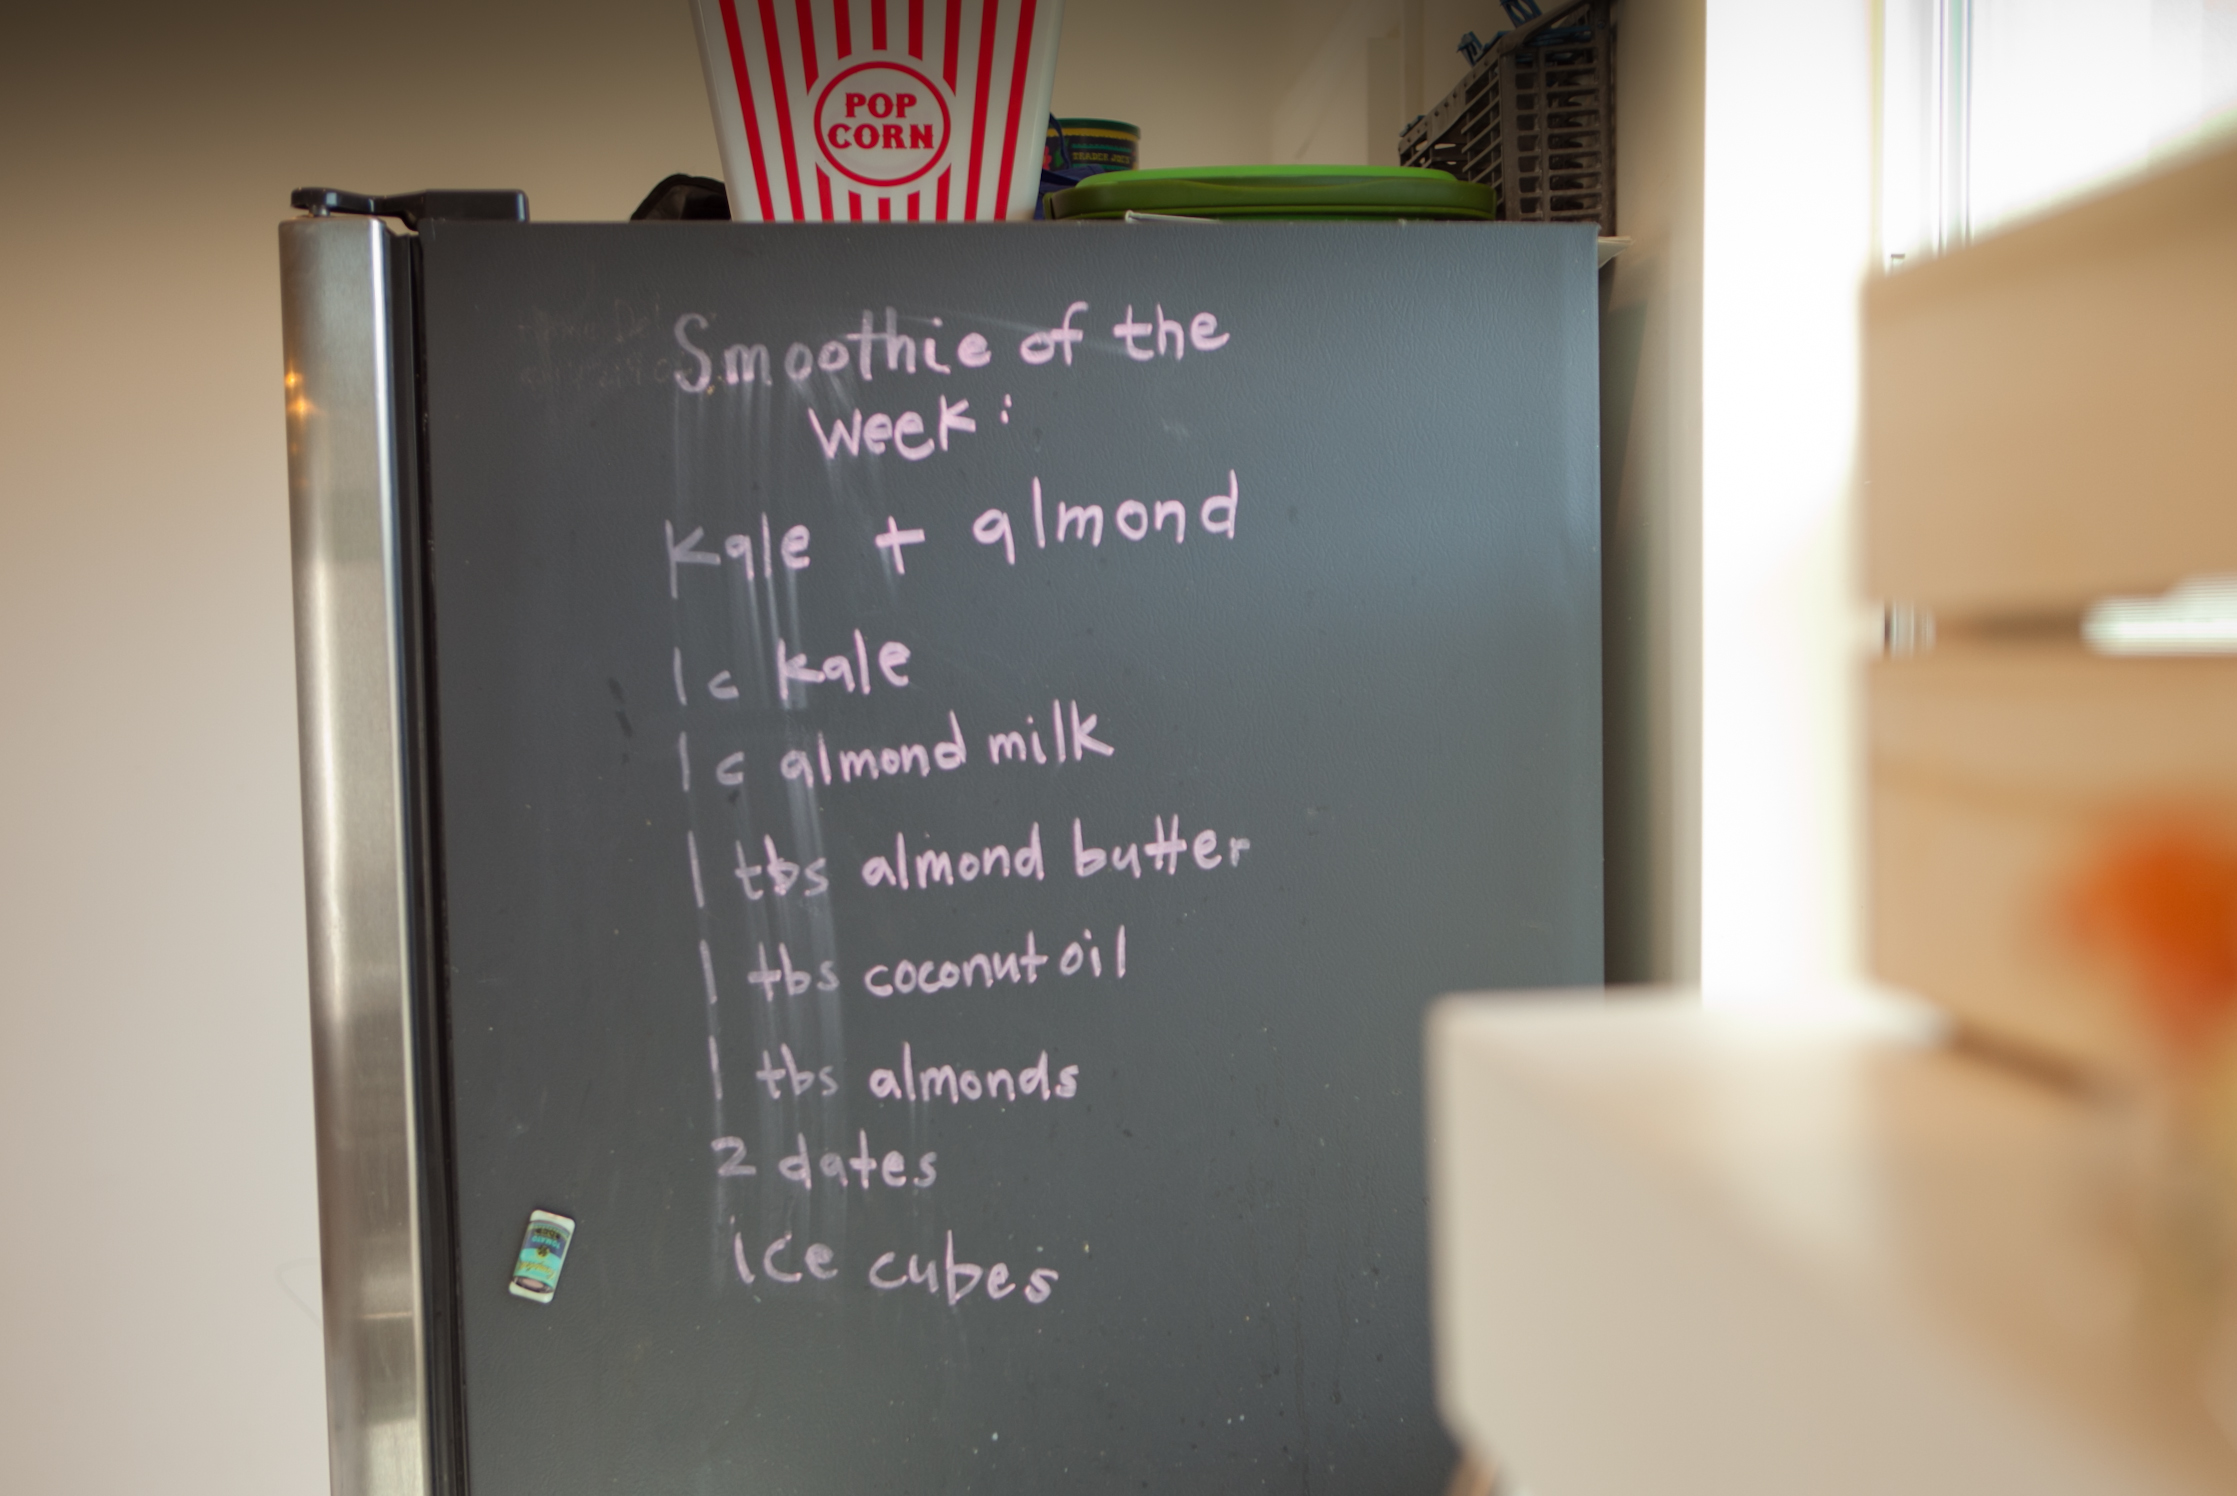 POP
CORN
TRADER JOE'S
Smoothie of the
week:
Kale + almond
1 c kale
1 c almond milk
1 tbs almond butter
1 tbs coconut oil
1 tbs almonds
2 dates
ice cubes
TOMATO
Campbell's